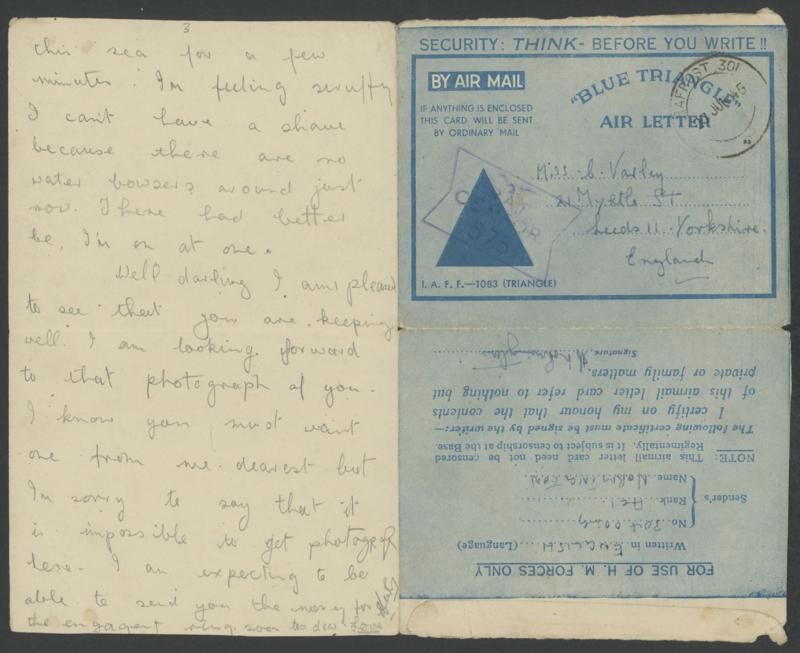 3
this sea for a few
minutes. I'm feeling scruffy
I can't have a shave
because there are no
water bowsers around just
now. There had better
be, I'm on at one.
Well darling I am pleased
to see that you are keeping
well. I am looking forward
to that photograph of you.
I know you must want
one from me dearest but
I'm sorry to say that it
is impossible to get photograph
here. I am expecting to be
able to send you the money for
the engagent ring soon dear. Love
SECURITY: THINK - BEFORE YOU WRITE!!
BY AIR MAIL
IF ANYTHING IS ENCLOSED
THIS CARD WILL BE SENT
BY ORDINARY MAIL
"BLUE TRIANGLE"
AIR LETTER
RAFPOST 301
JUN 45
CENSOR
575
Miss. C. Varley
21 Myrtle St
Leeds 11. Yorkshire.
England
I. A. F. F.—1083 (TRIANGLE)
FOR USE OF H. M. FORCES ONLY
Written in ENGLISH (Language)
Sender's
No.
Rank AC1
Name
NOTE: This airmail letter card need not be censored
Regimentally. It is subject to censorship at the Base.
The following certificate must be signed by the writer:—
I certify on my honour that the contents
of this airmail letter card refer to nothing but
private or family matters.
Signature.